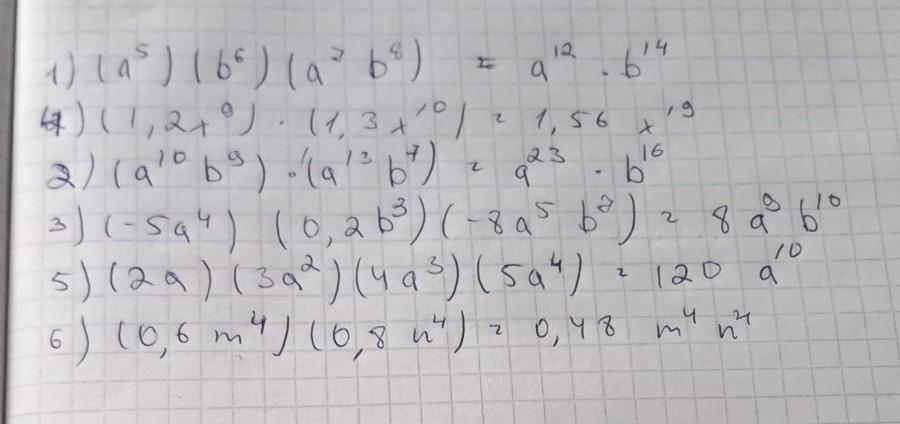 1) (a⁵) (b⁶) (a⁷ b⁸) = a¹² · b¹⁴
4) (1,2x⁹) · (1,3x¹⁰) = 1,56 x¹⁹
2) (a¹⁰ b⁹) · (a¹³ b⁷) = a²³ · b¹⁶
3) (-5a⁴) (0,2b³) (-8a⁵ b⁷) = 8 a⁹ b¹⁰
5) (2a) (3a²) (4a³) (5a⁴) = 120 a¹⁰
6) (0,6 m⁴) (0,8 n⁴) = 0,48 m⁴ n⁴